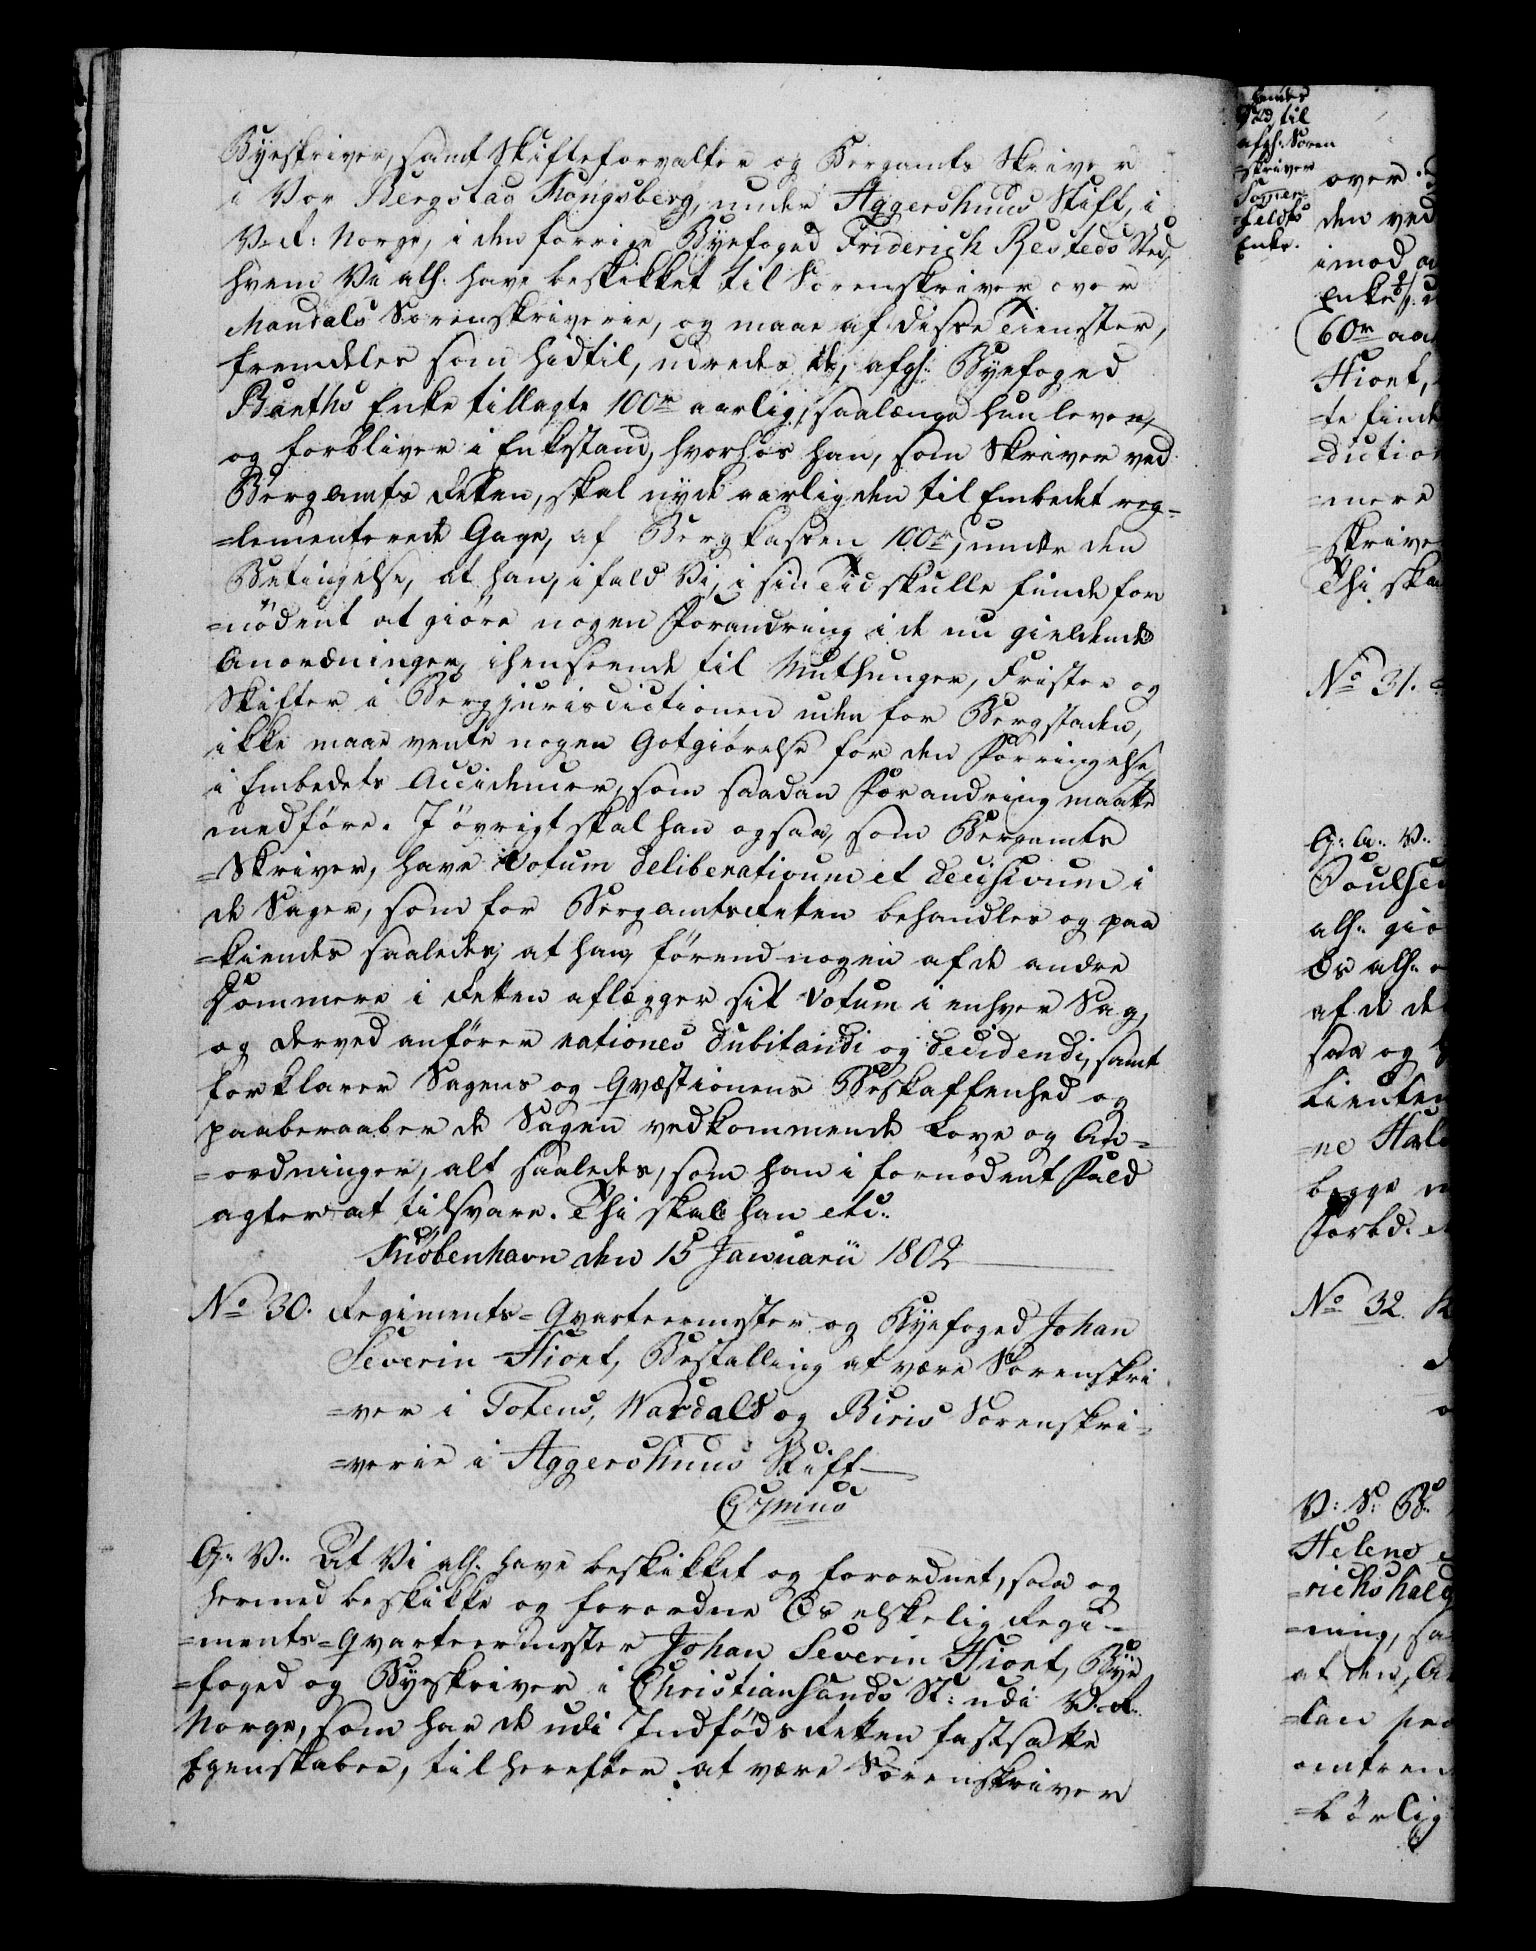 Byeskriver, samt Skifteforvalter og Bergamts Skriver
i Vor Bergstad Kongsberg, under Aggershuus Stift, i
V. R: Norge, i den forrige Byefoged Friderich Resteds Sted,
hvem Vi alh: have beskikket til Sorenskriver over
Mandals Sorenskriverie, og maae af disse Tienester,
fremdeles som hidtil, udredes de, afgl: Byefoged
Barths Enke tillagte 100r aarlig, saalænge hun lever,
og forbliver i Enkestand, hvorhos han, som Skriver ved
Bergamts Retten, skal nyde aarlig den til Embedet reg-
=lementerede Gage, af Bergkassen 100r, under den
Betingelse, at han, ifald Vi, i sin Tid skulle finde for
=nödent at giöre nogen Forandring i de nu gieldende
Anordninger, ihenseende til Muthunger, Frister og
Skifter i Bergjurisdictionen uden for Bergstaden,
ikke maae vente nogen Gotgiörelse for den Forringelse
i Embedets Accidencer, som saadan Forandring maatte
medföre. I övrigt skal han ogsaa, som Bergamts
=Skriver, have Votum deliberativum et decisivum i
de Sager, som for Bergamtsretten behandles og paa
=kiendes saaledes, at han, förend nogen af de andre
Dommere i Retten aflegger sit Votum i enhver Sag,
og derved anförer rationes dubitandi og decidendi, samt
forklarer Sagens og Qvæstionens Beskaffenhed og
paaberaaber de Sagen vedkommende Love og An=
=ordninger, alt saaledes, som han i fornödent Fald
agter at tilsvare. Thi skal han etc:
Kiöbenhavn den 15 Januarii 1802
No 30. Regiments=Qvarteermester og Byefoged Johan
Severin Hiort, Bestalling at være Sorenskri
=ver i Totens, Wardals og Biris Sorenskri=
=verie i Aggershuus Stift
C 7mus
G: V: At Vi alh: have beskikket og forordnet, saa og
hermed beskikke og forordne Os elskelig Regi=
=ments=Qvarteermester Johan Severin Hiort, Bye
=foged og Byeskriver i Christiansands St: udi V. R.
Norge, som har de udi Indföds Retten fastsatte
Egenskaber, til herefter at være Sorenskriver
Sted, til
afgl: Soren
=skriver
Enke.
over
den ved
imod
Enke
60r
Hiort,
=te finde
=diction
=mere
=skrive
Thi ska
No 31.
G: A: V:
Poulsen
alh: giö
Os alh:
af de de
saa og
Lieuten
=ne Hal
begge
Forbd.
No 32.
V: S: B:
Helene
=richshald
=ning, sa
at den,
=tan pro
omtren
=börlig